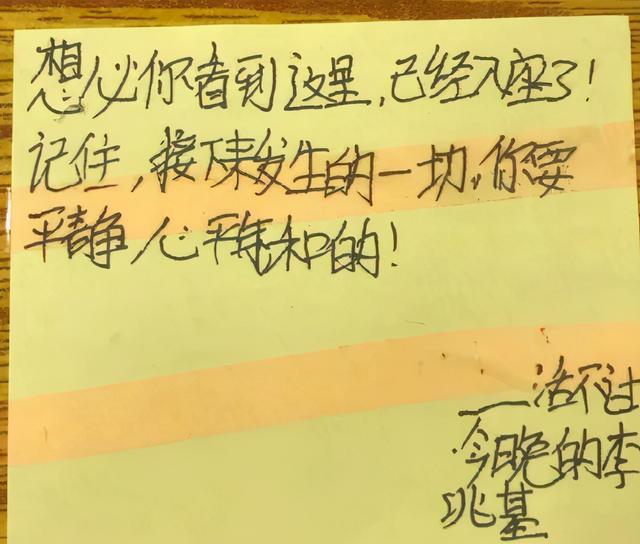 想必你看到这里,已经入座了!
记住,接下来发生的一切,你要
平静心平气和的!
——活不过
今晚的李
兆基